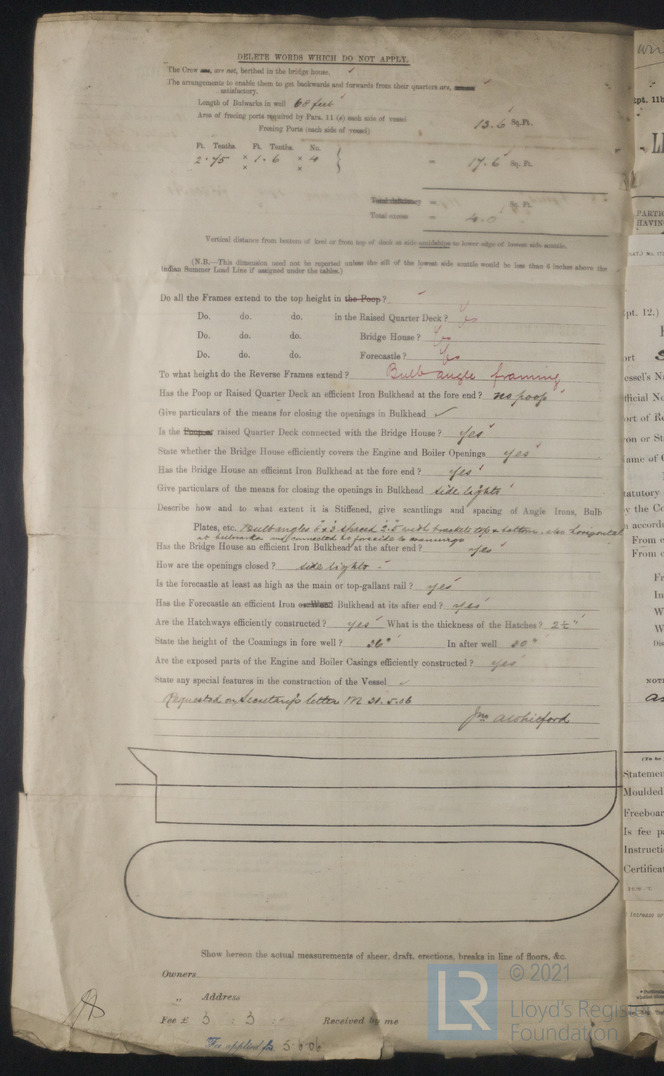 DELETE WORDS WHICH DO NOT APPLY.
The Crew are, are not, berthed in the bridge house. ✓
The arrangements to enable them to get backwards and forwards from their quarters are, ✓
satisfactory.
Length of Bulwarks in well 60 feet
Area of freeing ports required by Para. 11 (e) each side of vessel 13.6 Sq.Ft.
Freeing Ports (each side of vessel)
Ft. Tenths. Ft. Tenths. No.
2.75 × 1.6 × 4 } = 17.6 Sq. Ft.
× ×
Total deficiency = Sq. Ft.
Total excess = 4.0
Vertical distance from bottom of keel or from top of deck at side amidships to lower edge of lowest side scuttle.
(N.B.—This dimension need not be reported unless the sill of the lowest side scuttle would be less than 6 inches above the
Indian Summer Load Line if assigned under the tables.)
Do all the Frames extend to the top height in the Poop?
Do. do. do. in the Raised Quarter Deck? Yes
Do. do. do. Bridge House? Yes
Do. do. do. Forecastle? Yes
To what height do the Reverse Frames extend? Bulb angle framing
Has the Poop or Raised Quarter Deck an efficient Iron Bulkhead at the fore end? no poop
Give particulars of the means for closing the openings in Bulkhead ✓
Is the Poop or raised Quarter Deck connected with the Bridge House? yes
State whether the Bridge House efficiently covers the Engine and Boiler Openings yes
Has the Bridge House an efficient Iron Bulkhead at the fore end? yes
Give particulars of the means for closing the openings in Bulkhead side lights
Describe how and to what extent it is Stiffened, give scantlings and spacing of Angle Irons, Bulb
Plates, etc. Bulb angles 6 x 3 spaced 2.5 with brackets top & bottom, also horizontal
at bulwarks and connected to
Has the Bridge House an efficient Iron Bulkhead at the after end? yes
How are the openings closed? side lights
Is the forecastle at least as high as the main or top-gallant rail? yes
Has the Forecastle an efficient Iron or Wood Bulkhead at its after end? yes
Are the Hatchways efficiently constructed? yes What is the thickness of the Hatches? 2½"
State the height of the Coamings in fore well? 36" In after well 30"
Are the exposed parts of the Engine and Boiler Casings efficiently constructed? yes
State any special features in the construction of the Vessel
Requested on Secretary's letter M 31.5.06
Show hereon the actual measurements of sheer, draft, erections, breaks in line of floors, &c.
Owners
„ Address
Fee £ 3 : 3 : Received by me
Fee applied for 5.6.06
LR © 2021
Lloyd's Register
Foundation